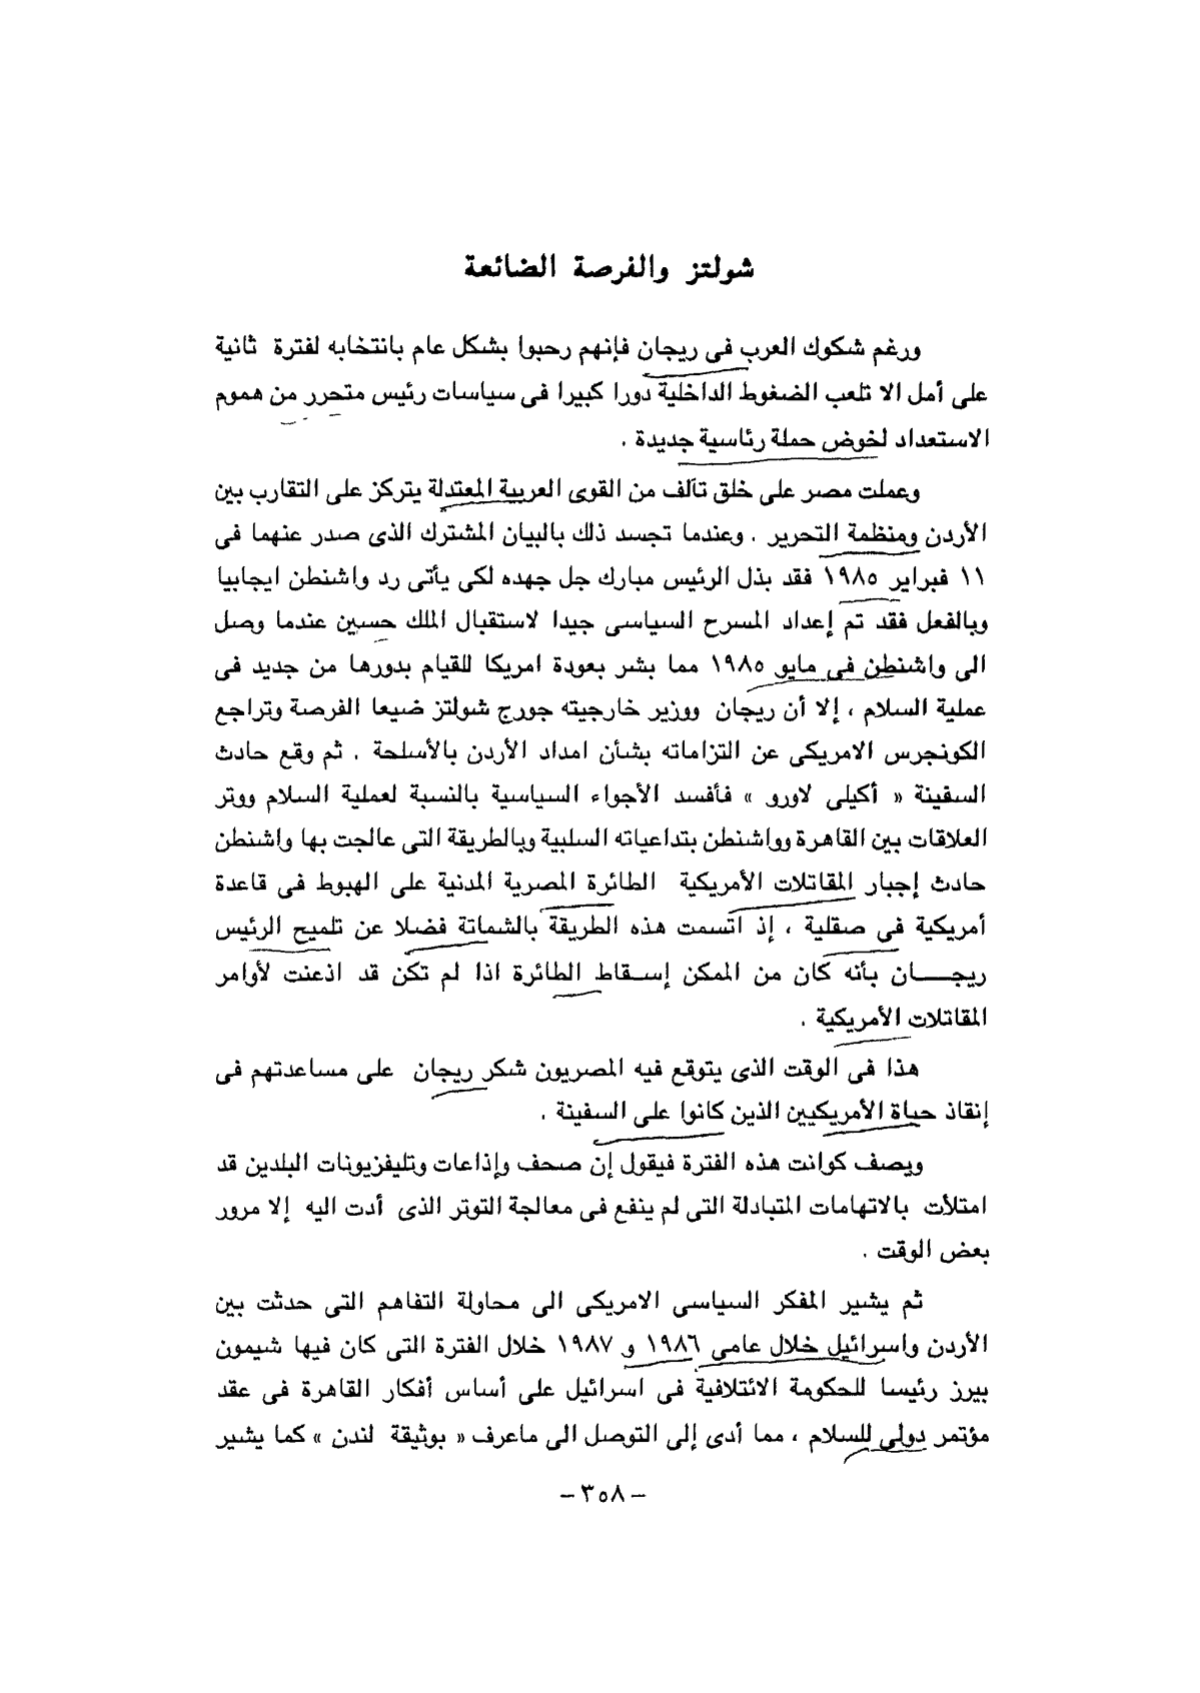 شولتز والفرصة الضائعة
ورغم شكوك العرب فى ريجان فإنهم رحبوا بشكل عام بانتخابه لفترة ثانية
على أمل الا تلعب الضغوط الداخلية دورا كبيرا فى سياسات رئيس متحرر من هموم
الاستعداد لخوض حملة رئاسية جديدة .
وعملت مصر على خلق تآلف من القوى العربية المعتدلة يتركز على التقارب بين
الأردن ومنظمة التحرير . وعندما تجسد ذلك بالبيان المشترك الذى صدر عنهما فى
١١ فبراير ١٩٨٥ فقد بذل الرئيس مبارك جل جهده لكى يأتى رد واشنطن ايجابيا
وبالفعل فقد تم إعداد المسرح السياسى جيدا لاستقبال الملك حسين عندما وصل
الى واشنطن فى مايو ١٩٨٥ مما بشر بعودة امريكا للقيام بدورها من جديد فى
عملية السلام ، إلا أن ريجان ووزير خارجيته جورج شولتز ضيعا الفرصة وتراجع
الكونجرس الامريكى عن التزاماته بشأن امداد الأردن بالأسلحة . ثم وقع حادث
السفينة « أكيلى لاورو » فأفسد الأجواء السياسية بالنسبة لعملية السلام ووتر
العلاقات بين القاهرة وواشنطن بتداعياته السلبية وبالطريقة التى عالجت بها واشنطن
حادث إجبار المقاتلات الأمريكية الطائرة المصرية المدنية على الهبوط فى قاعدة
أمريكية فى صقلية ، إذ اتسمت هذه الطريقة بالشماتة فضلا عن تلميح الرئيس
ريجـــان بأنه كان من الممكن إسـقاط الطائرة اذا لم تكن قد اذعنت لأوامر
المقاتلات الأمريكية .
هذا فى الوقت الذى يتوقع فيه المصريون شكر ريجان على مساعدتهم فى
إنقاذ حياة الأمريكيين الذين كانوا على السفينة .
ويصف كوانت هذه الفترة فيقول إن صحف وإذاعات وتليفزيونات البلدين قد
امتلأت بالاتهامات المتبادلة التى لم ينفع فى معالجة التوتر الذى أدت اليه إلا مرور
بعض الوقت .
ثم يشير المفكر السياسى الامريكى الى محاولة التفاهم التى حدثت بين
الأردن واسرائيل خلال عامى ١٩٨٦ و ١٩٨٧ خلال الفترة التى كان فيها شيمون
بيرز رئيسا للحكومة الائتلافية فى اسرائيل على أساس أفكار القاهرة فى عقد
مؤتمر دولى للسلام ، مما أدى إلى التوصل الى ماعرف « بوثيقة لندن » كما يشير
– ٣٥٨ –